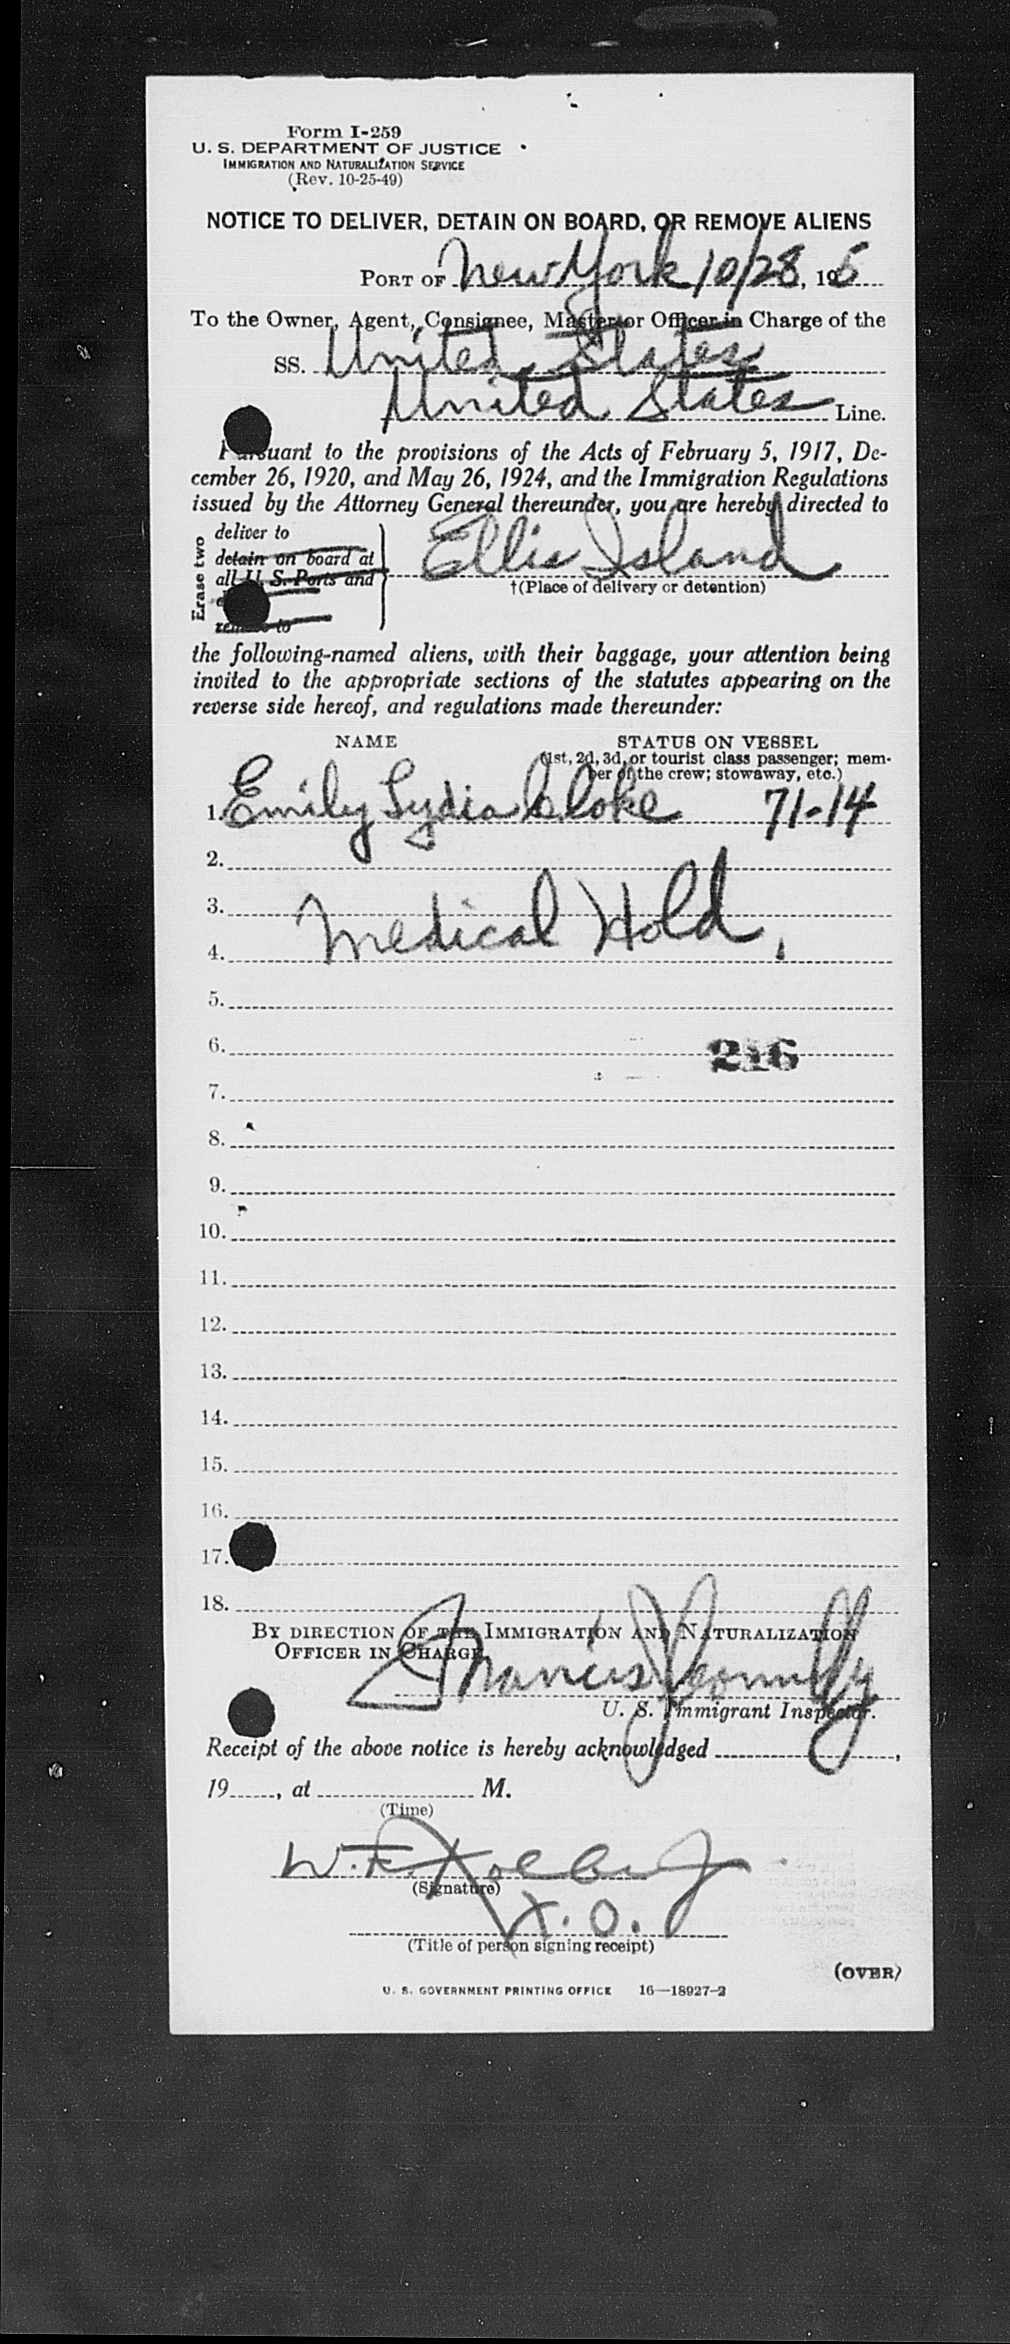 Form I-259
U. S. DEPARTMENT OF JUSTICE
IMMIGRATION AND NATURALIZATION SERVICE
(Rev. 10-25-49)
NOTICE TO DELIVER, DETAIN ON BOARD, OR REMOVE ALIENS
PORT OF New York 10/28, 195
To the Owner, Agent, Consignee, Master or Officer in Charge of the
SS. United States
United States Line.
Pursuant to the provisions of the Acts of February 5, 1917, De-
cember 26, 1920, and May 26, 1924, and the Immigration Regulations
issued by the Attorney General thereunder, you are hereby directed to
Erase two
deliver to
detain on board at
all U. S. Ports and
remove to
Ellis Island
†(Place of delivery or detention)
the following-named aliens, with their baggage, your attention being
invited to the appropriate sections of the statutes appearing on the
reverse side hereof, and regulations made thereunder:
NAME STATUS ON VESSEL
(1st, 2d, 3d, or tourist class passenger; mem-
ber of the crew; stowaway, etc.)
1. Emily Lydia Cloke 71-14
2.
3. Medical Hold,
4.
5.
6. 216
7.
8.
9.
10.
11.
12.
13.
14.
15.
16.
17.
18.
BY DIRECTION OF THE IMMIGRATION AND NATURALIZATION
OFFICER IN CHARGE
Francis J Connolly
U. S. Immigrant Inspector.
Receipt of the above notice is hereby acknowledged ,
19 , at M.
(Time)
W. F.
(Signature)
X. O.
(Title of person signing receipt)
(OVER)
U. S. GOVERNMENT PRINTING OFFICE 16—18927-2